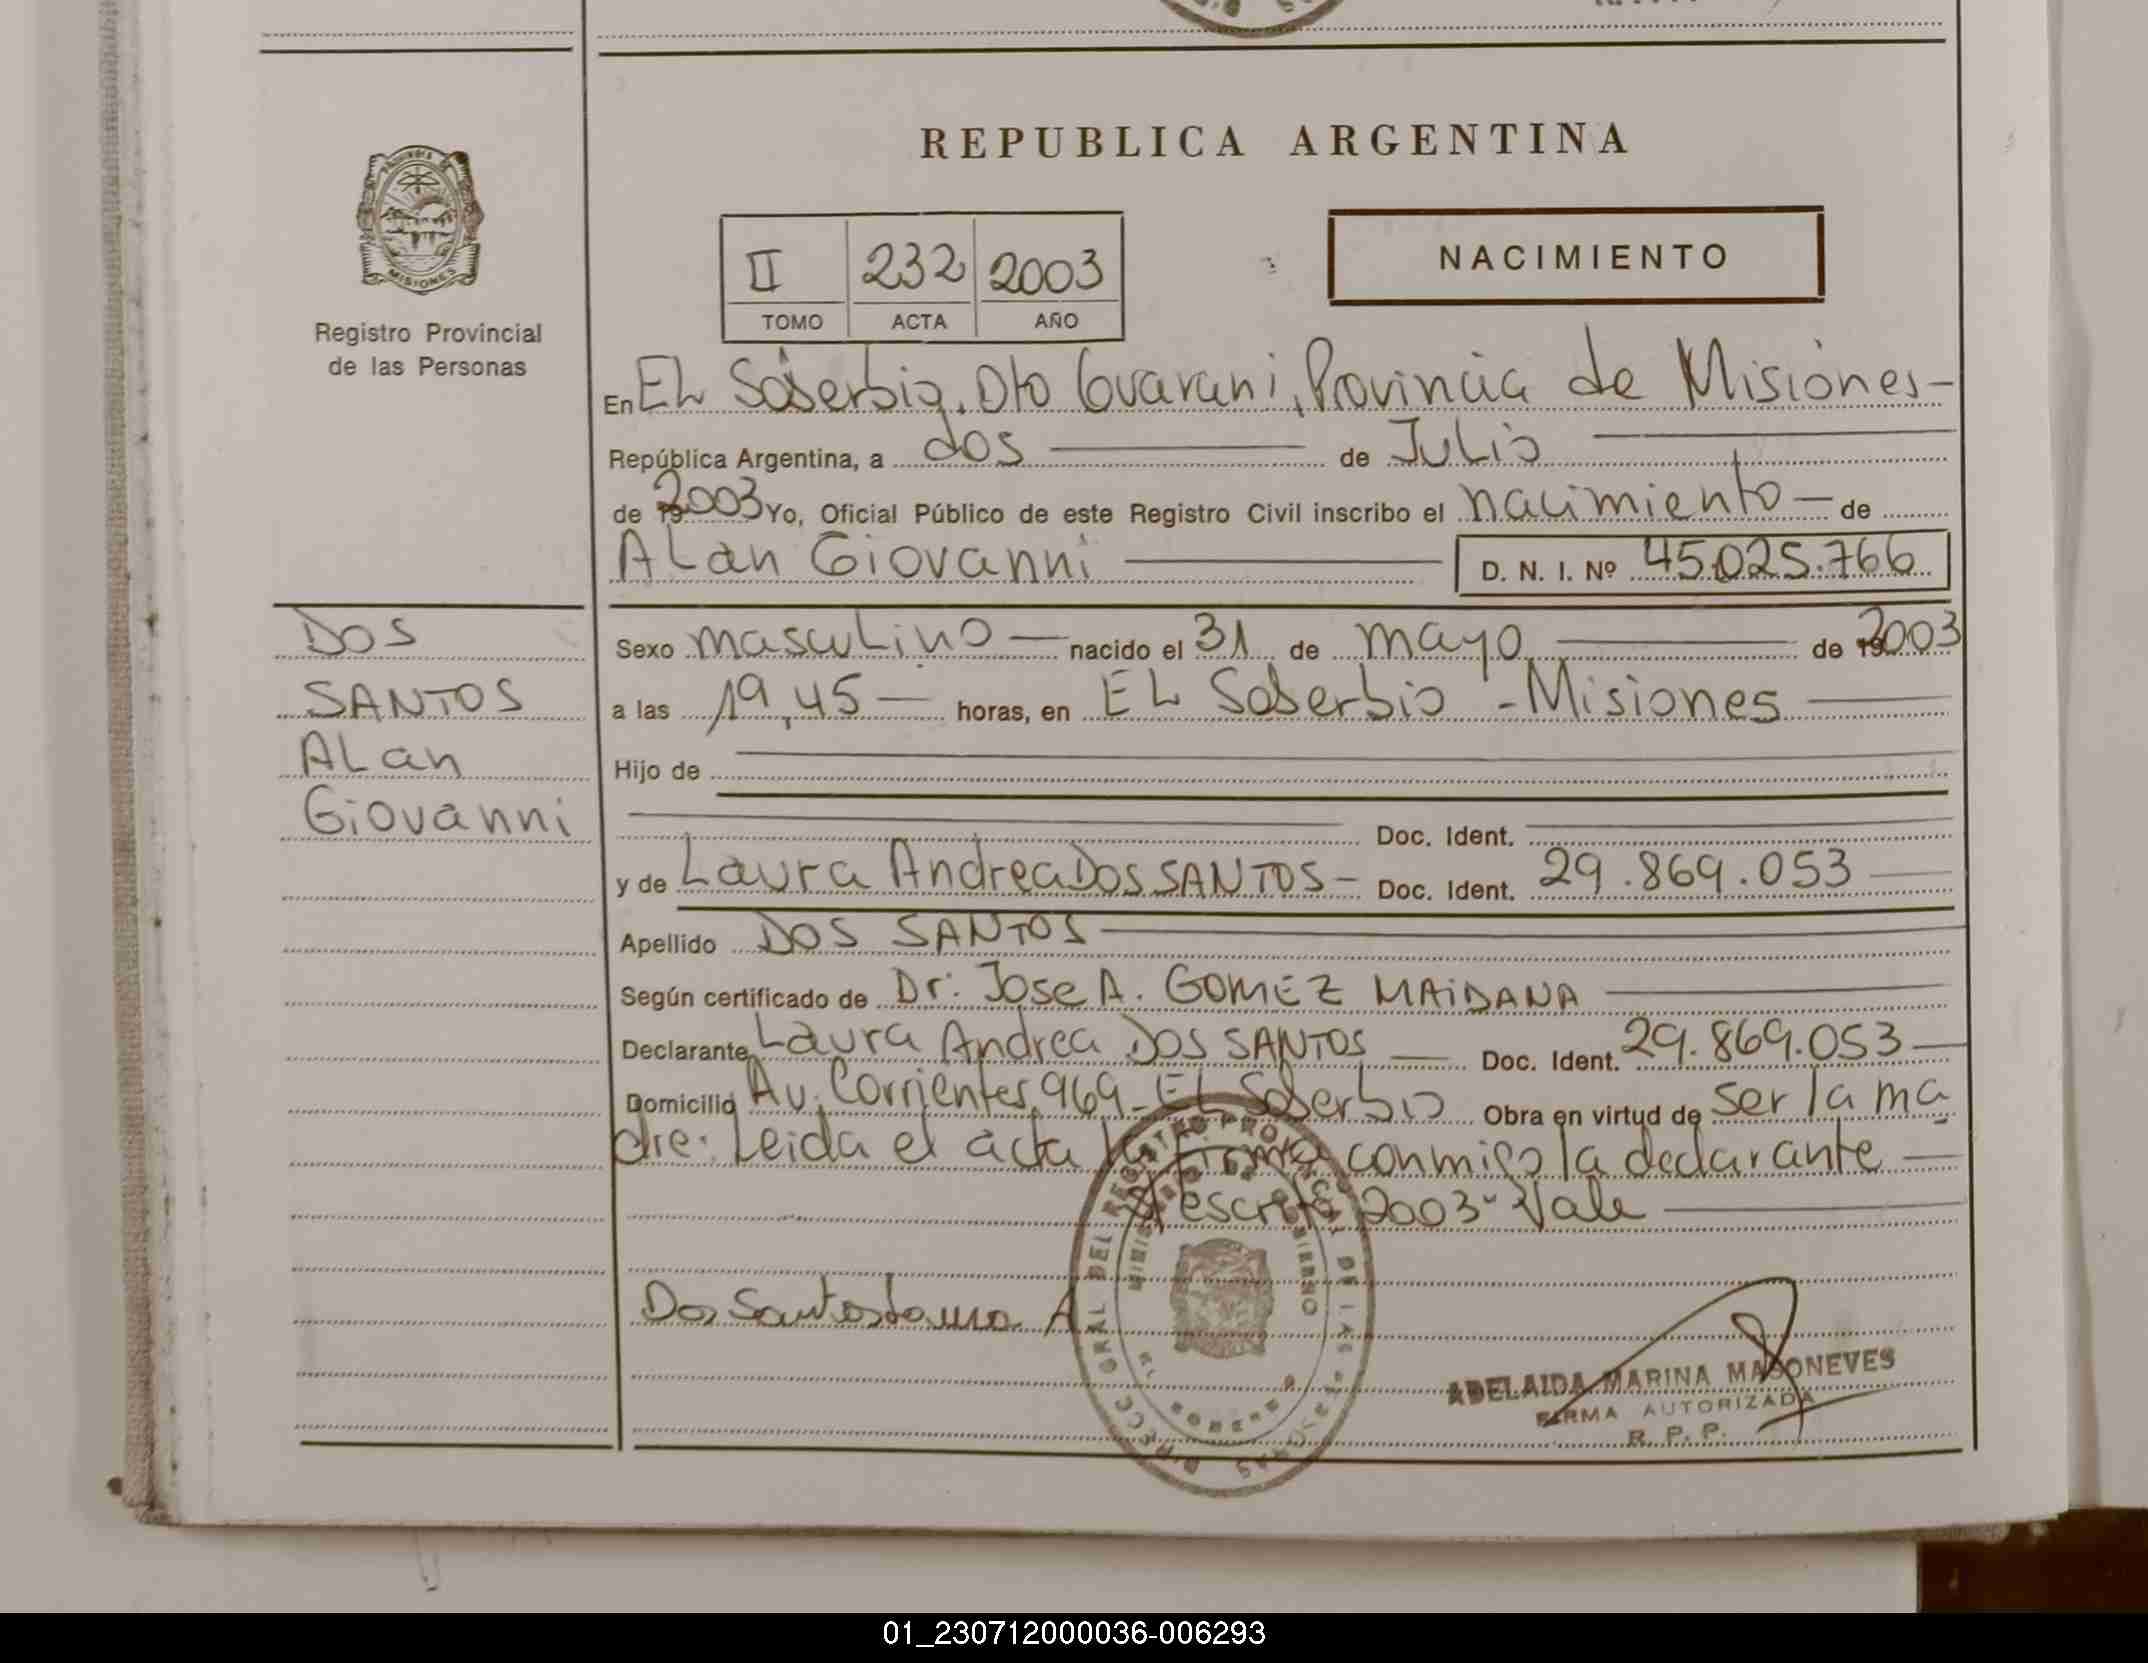 REPUBLICA ARGENTINA
PROVINCIA DE
MISIONES
Registro Provincial
de las Personas
II 232 2003
TOMO ACTA AÑO
NACIMIENTO
En EL Soberbio, Dto Guarani, Provincia de Misiones-
República Argentina, a dos de Julio
de 19 2003 Yo, Oficial Público de este Registro Civil inscribo el nacimiento — de
ALan Giovanni D. N. I. Nº 45.025.766
DOS
SANTOS
ALan
Giovanni
Sexo masculino — nacido el 31 de mayo de 19 2003
a las 19,45 — horas, en EL Soberbio - Misiones
Hijo de
Doc. Ident.
y de Laura Andrea DOS SANTOS - Doc. Ident. 29.869.053
Apellido DOS SANTOS
Según certificado de Dr. Jose A. GOMEZ MAIDANA
Declarante Laura Andrea DOS SANTOS — Doc. Ident. 29.869.053
Domicilio Av. Corrientes 969 - EL Soberbio Obra en virtud de ser la ma
dre: Leida el acta la Firma conmigo la declarante
S/escrito 2003- Vale
Dos Santos Laura A
ADELAIDA MARINA MASONEVES
FIRMA AUTORIZADA
R. P. P.
01_230712000036-006293